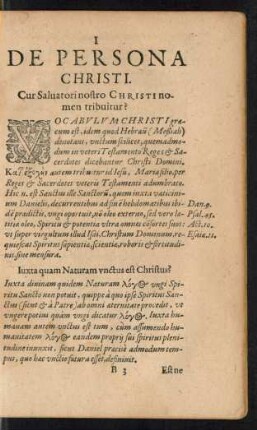 I
DE PERSONA
CHRISTI.
Cur Saluatori nostro CHRISTI no-
men tribuitur?
VOCABVLVM CHRISTI græ-
cum est, idem quod Hebræũ (Messiah)
denotans, vnctum scilicet, quemadmo-
dum in veteri Testamento Reges & Sa-
cerdotes dicebantur Christi Domini.
autem tribuitur Iesu, Mariæ filio, per
Reges & Sacerdotes veteris Testamenti adumbrato.
Hic n. est Sanctus ille Sanctorũ, quem iuxta vaticini-
um Danielis, decurrentibus ad finẽ hebdomatibus ibi- Dan. 9.
dẽ prædictis, vngi oportuit, nõ oleo externo, sed vero læ- Psal. 45.
titiæ oleo, Spiritu & potentia vltra omnes cõsortes suos: Act. 10.
vt super virgultum illud Isai, Christum Dominum, re- Esaia. 11.
quiescat Spiritus sapientiæ, scientiæ, roboris & fortitudi-
nis, sine mensura.
Iuxta quam Naturam vnctus est Christus?
Iuxta diuinam quidem Naturam λόγος vngi Spi-
ritu Sancto non potuit, quippe à quo ipse Spiritus San-
ctus (sicut & à Patre) ab omni æternitate procedit, vt
vngere potius quàm vngi dicatur λόγος. Iuxta hu-
manam autem vnctus est tum, cùm assumendo hu-
manitatem λόγος eandem proprij sui spiritus pleni-
tudine inunxit, sicut Daniel præcisè admodum tem-
pus, quo hæc vnctio futura esset, definiuit.
B 3 Estne